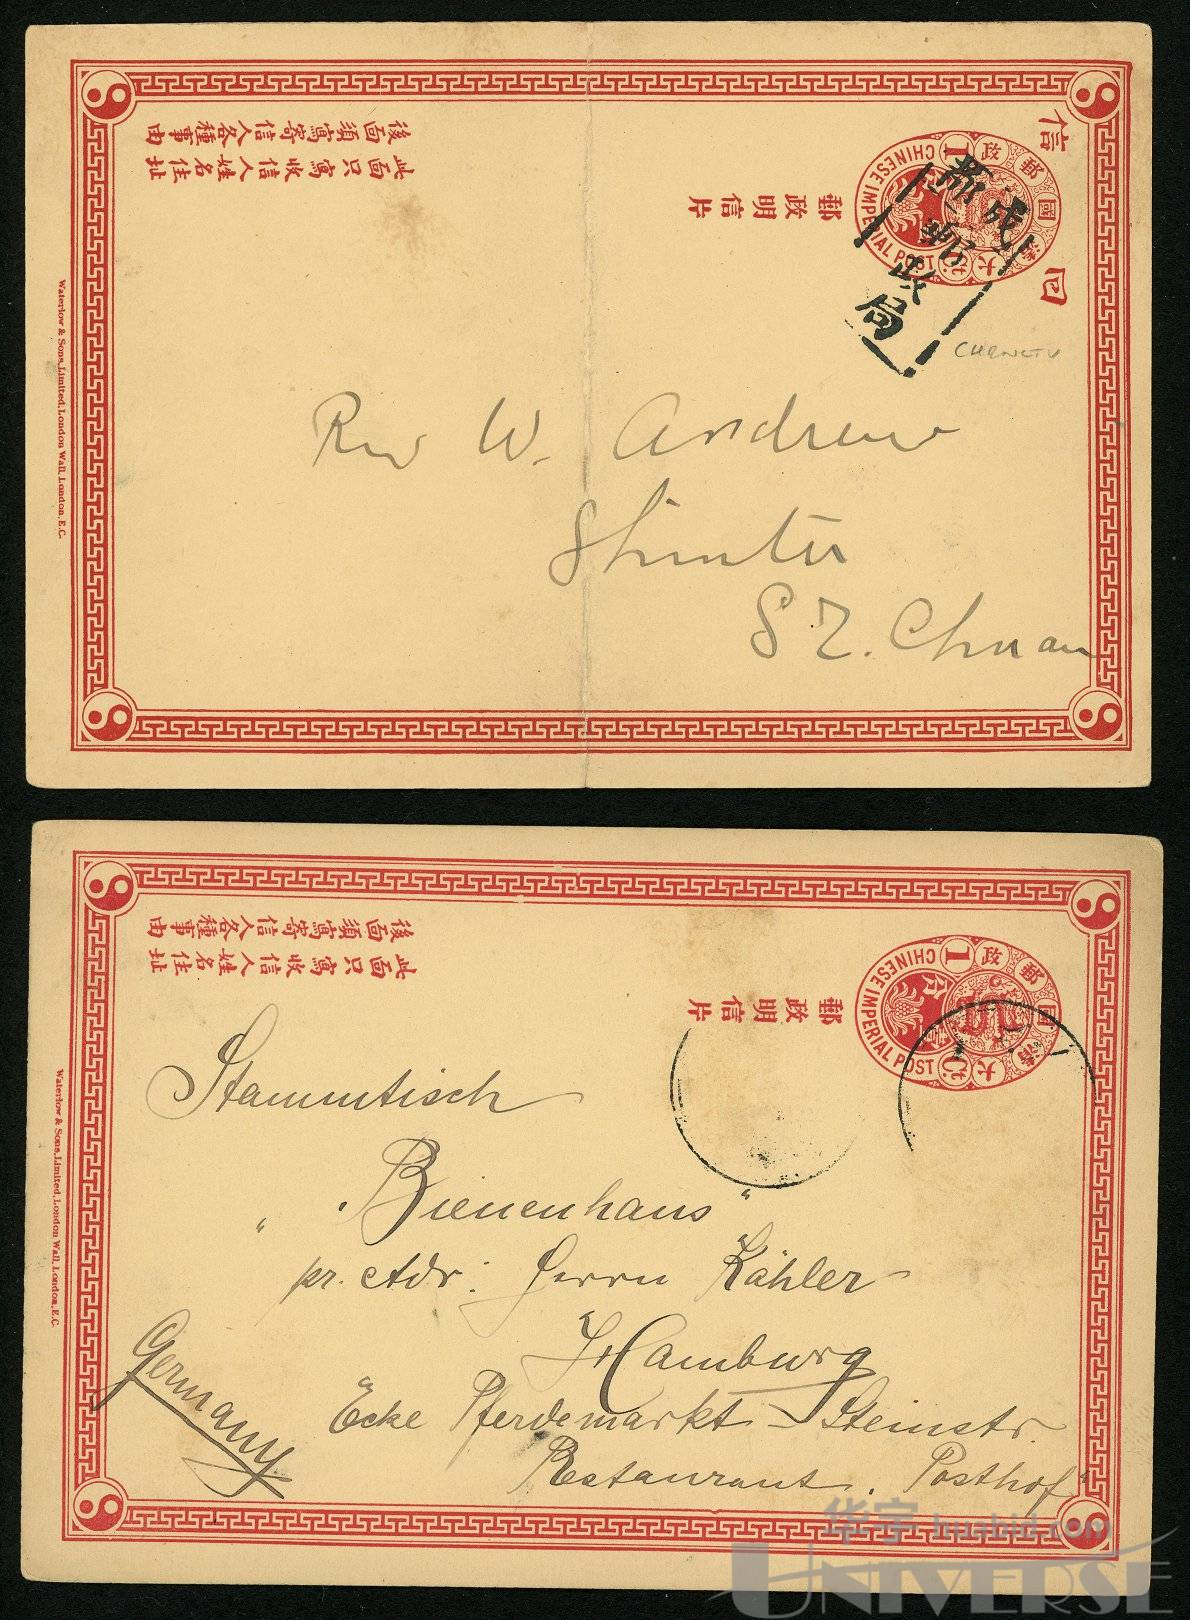 後面須寫寄信人各種事由
此面只寫收信人姓名住址
郵政明信片
信回
大清國郵政
CHINESE IMPERIAL POST
成都郵政局
CHENGTU
Rev W. Andrew
Shunter
SZ. Chuan
Waterlow & Sons, Limited, London Wall, London, E.C.
後面須寫寄信人各種事由
此面只寫收信人姓名住址
郵政明信片
大清國郵政
1
CHINESE IMPERIAL POST
Stammtisch
"Bienenhaus"
pr. Adr: Herrn Kähler
Hamburg
Germany
Ecke Pferdemarkt - Steinstr.
Restaurant "Posthof"
Waterlow & Sons, Limited, London Wall, London, E.C.
华宇 huabid.com
UNIVERSE